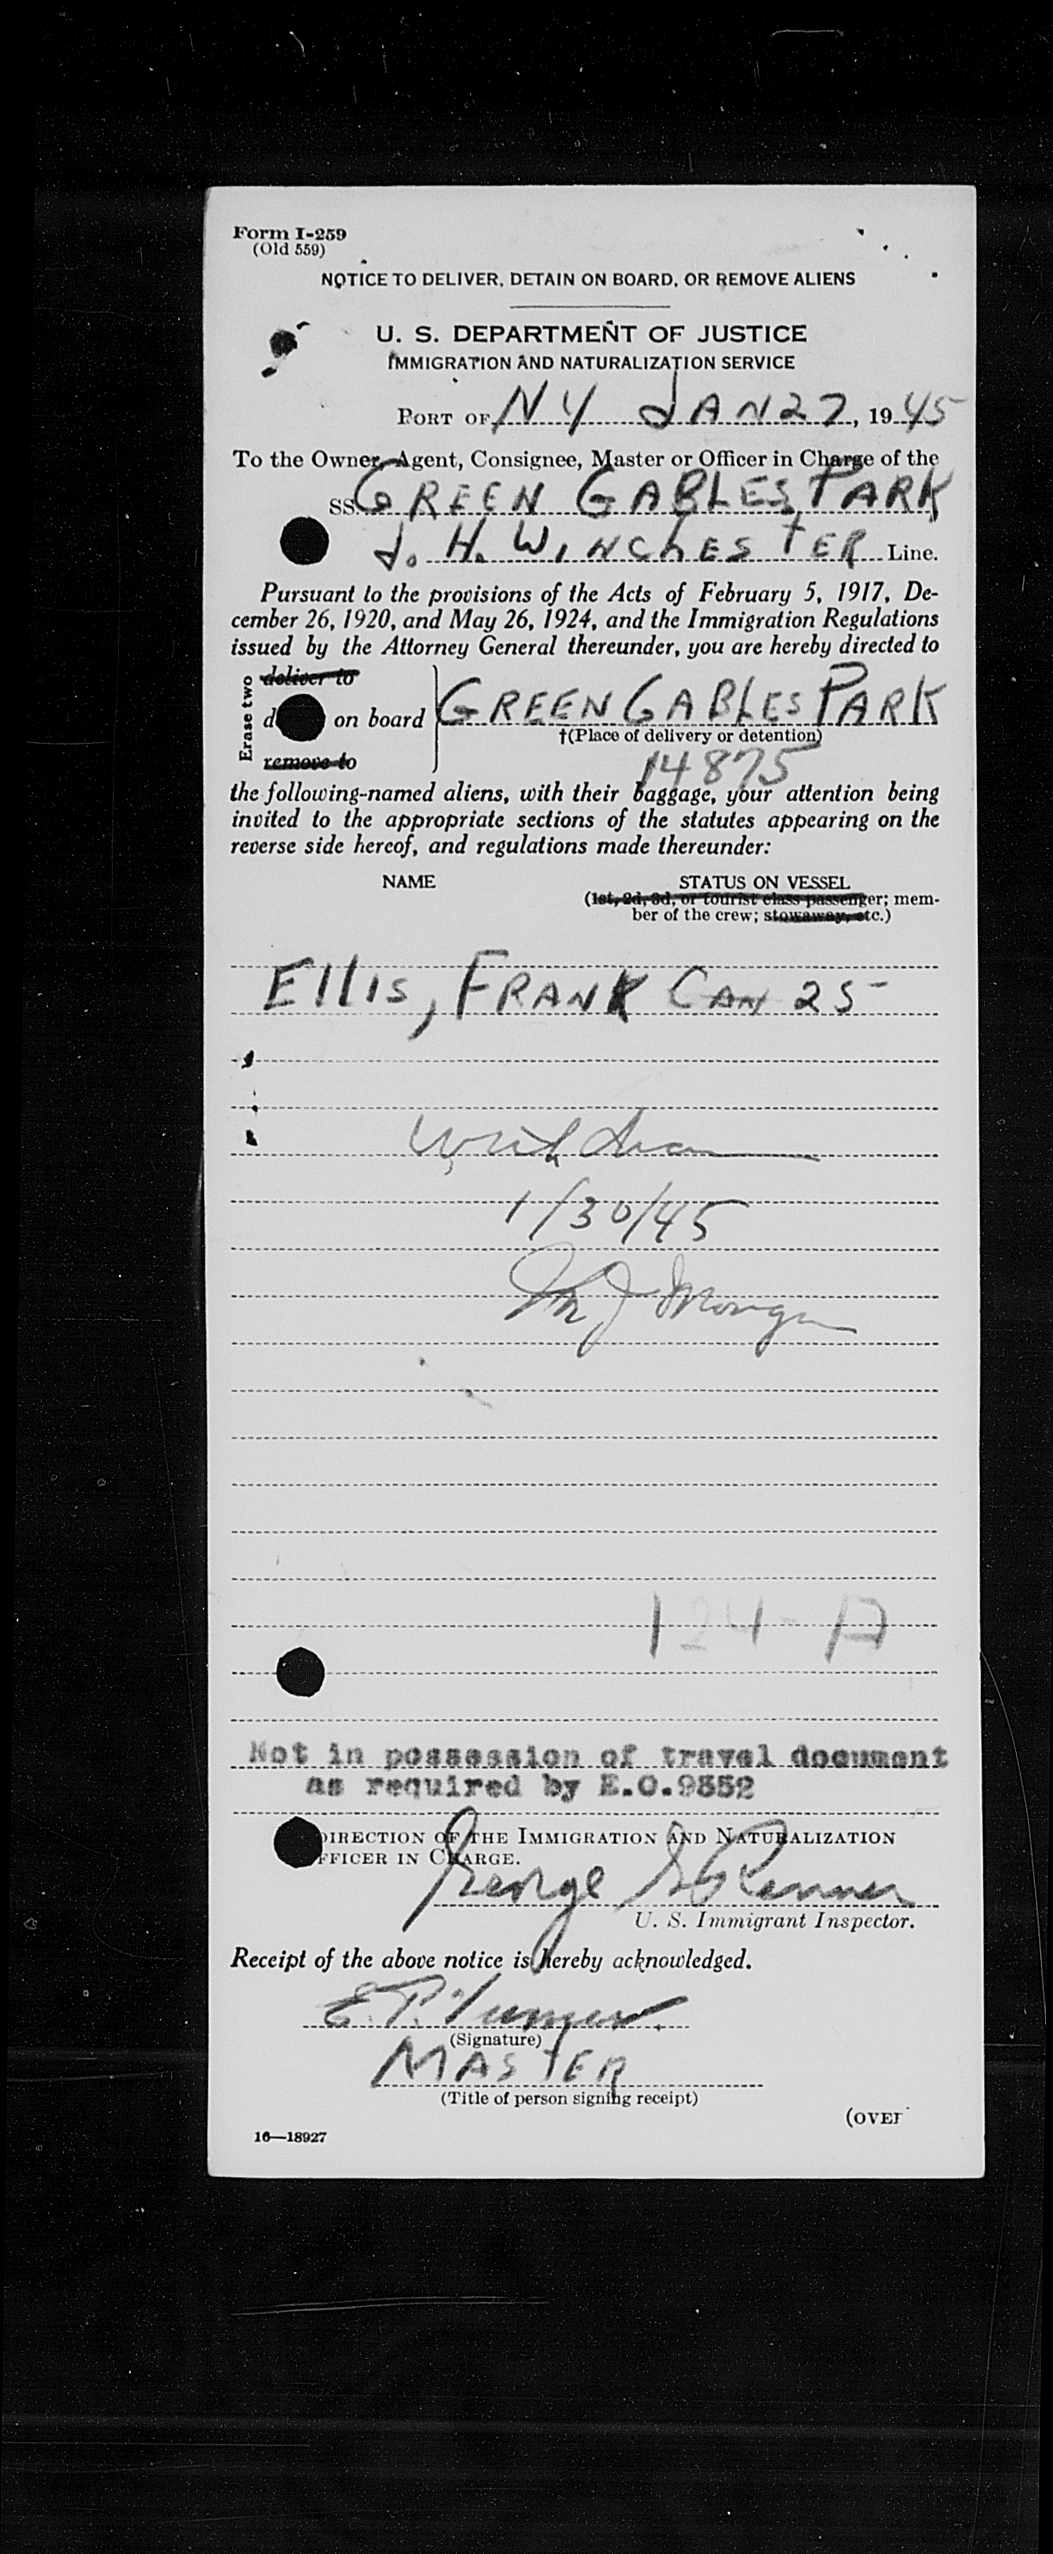 Form I-259
(Old 559)
NOTICE TO DELIVER, DETAIN ON BOARD, OR REMOVE ALIENS
U. S. DEPARTMENT OF JUSTICE
IMMIGRATION AND NATURALIZATION SERVICE
PORT OF NY JAN 27, 1945
To the Owner, Agent, Consignee, Master or Officer in Charge of the
SS GREEN GABLES PARK
J. H. WINCHESTER Line.
Pursuant to the provisions of the Acts of February 5, 1917, De-
cember 26, 1920, and May 26, 1924, and the Immigration Regulations
issued by the Attorney General thereunder, you are hereby directed to
Erase two
deliver to
d on board GREEN GABLES PARK
†(Place of delivery or detention)
remove to
14875
the following-named aliens, with their baggage, your attention being
invited to the appropriate sections of the statutes appearing on the
reverse side hereof, and regulations made thereunder:
NAME STATUS ON VESSEL
(1st, 2d, 3d, or tourist class passenger; mem-
ber of the crew; stowaway, etc.)
Ellis, FRANK CAN 25
Withdrawn
1/30/45
J Morgan
124-A
Not in possession of travel document
as required by E.O.9352
DIRECTION OF THE IMMIGRATION AND NATURALIZATION
FFICER IN CHARGE.
George
U. S. Immigrant Inspector.
Receipt of the above notice is hereby acknowledged.
E.P.
(Signature)
MASTER
(Title of person signing receipt)
(OVER
16—18927